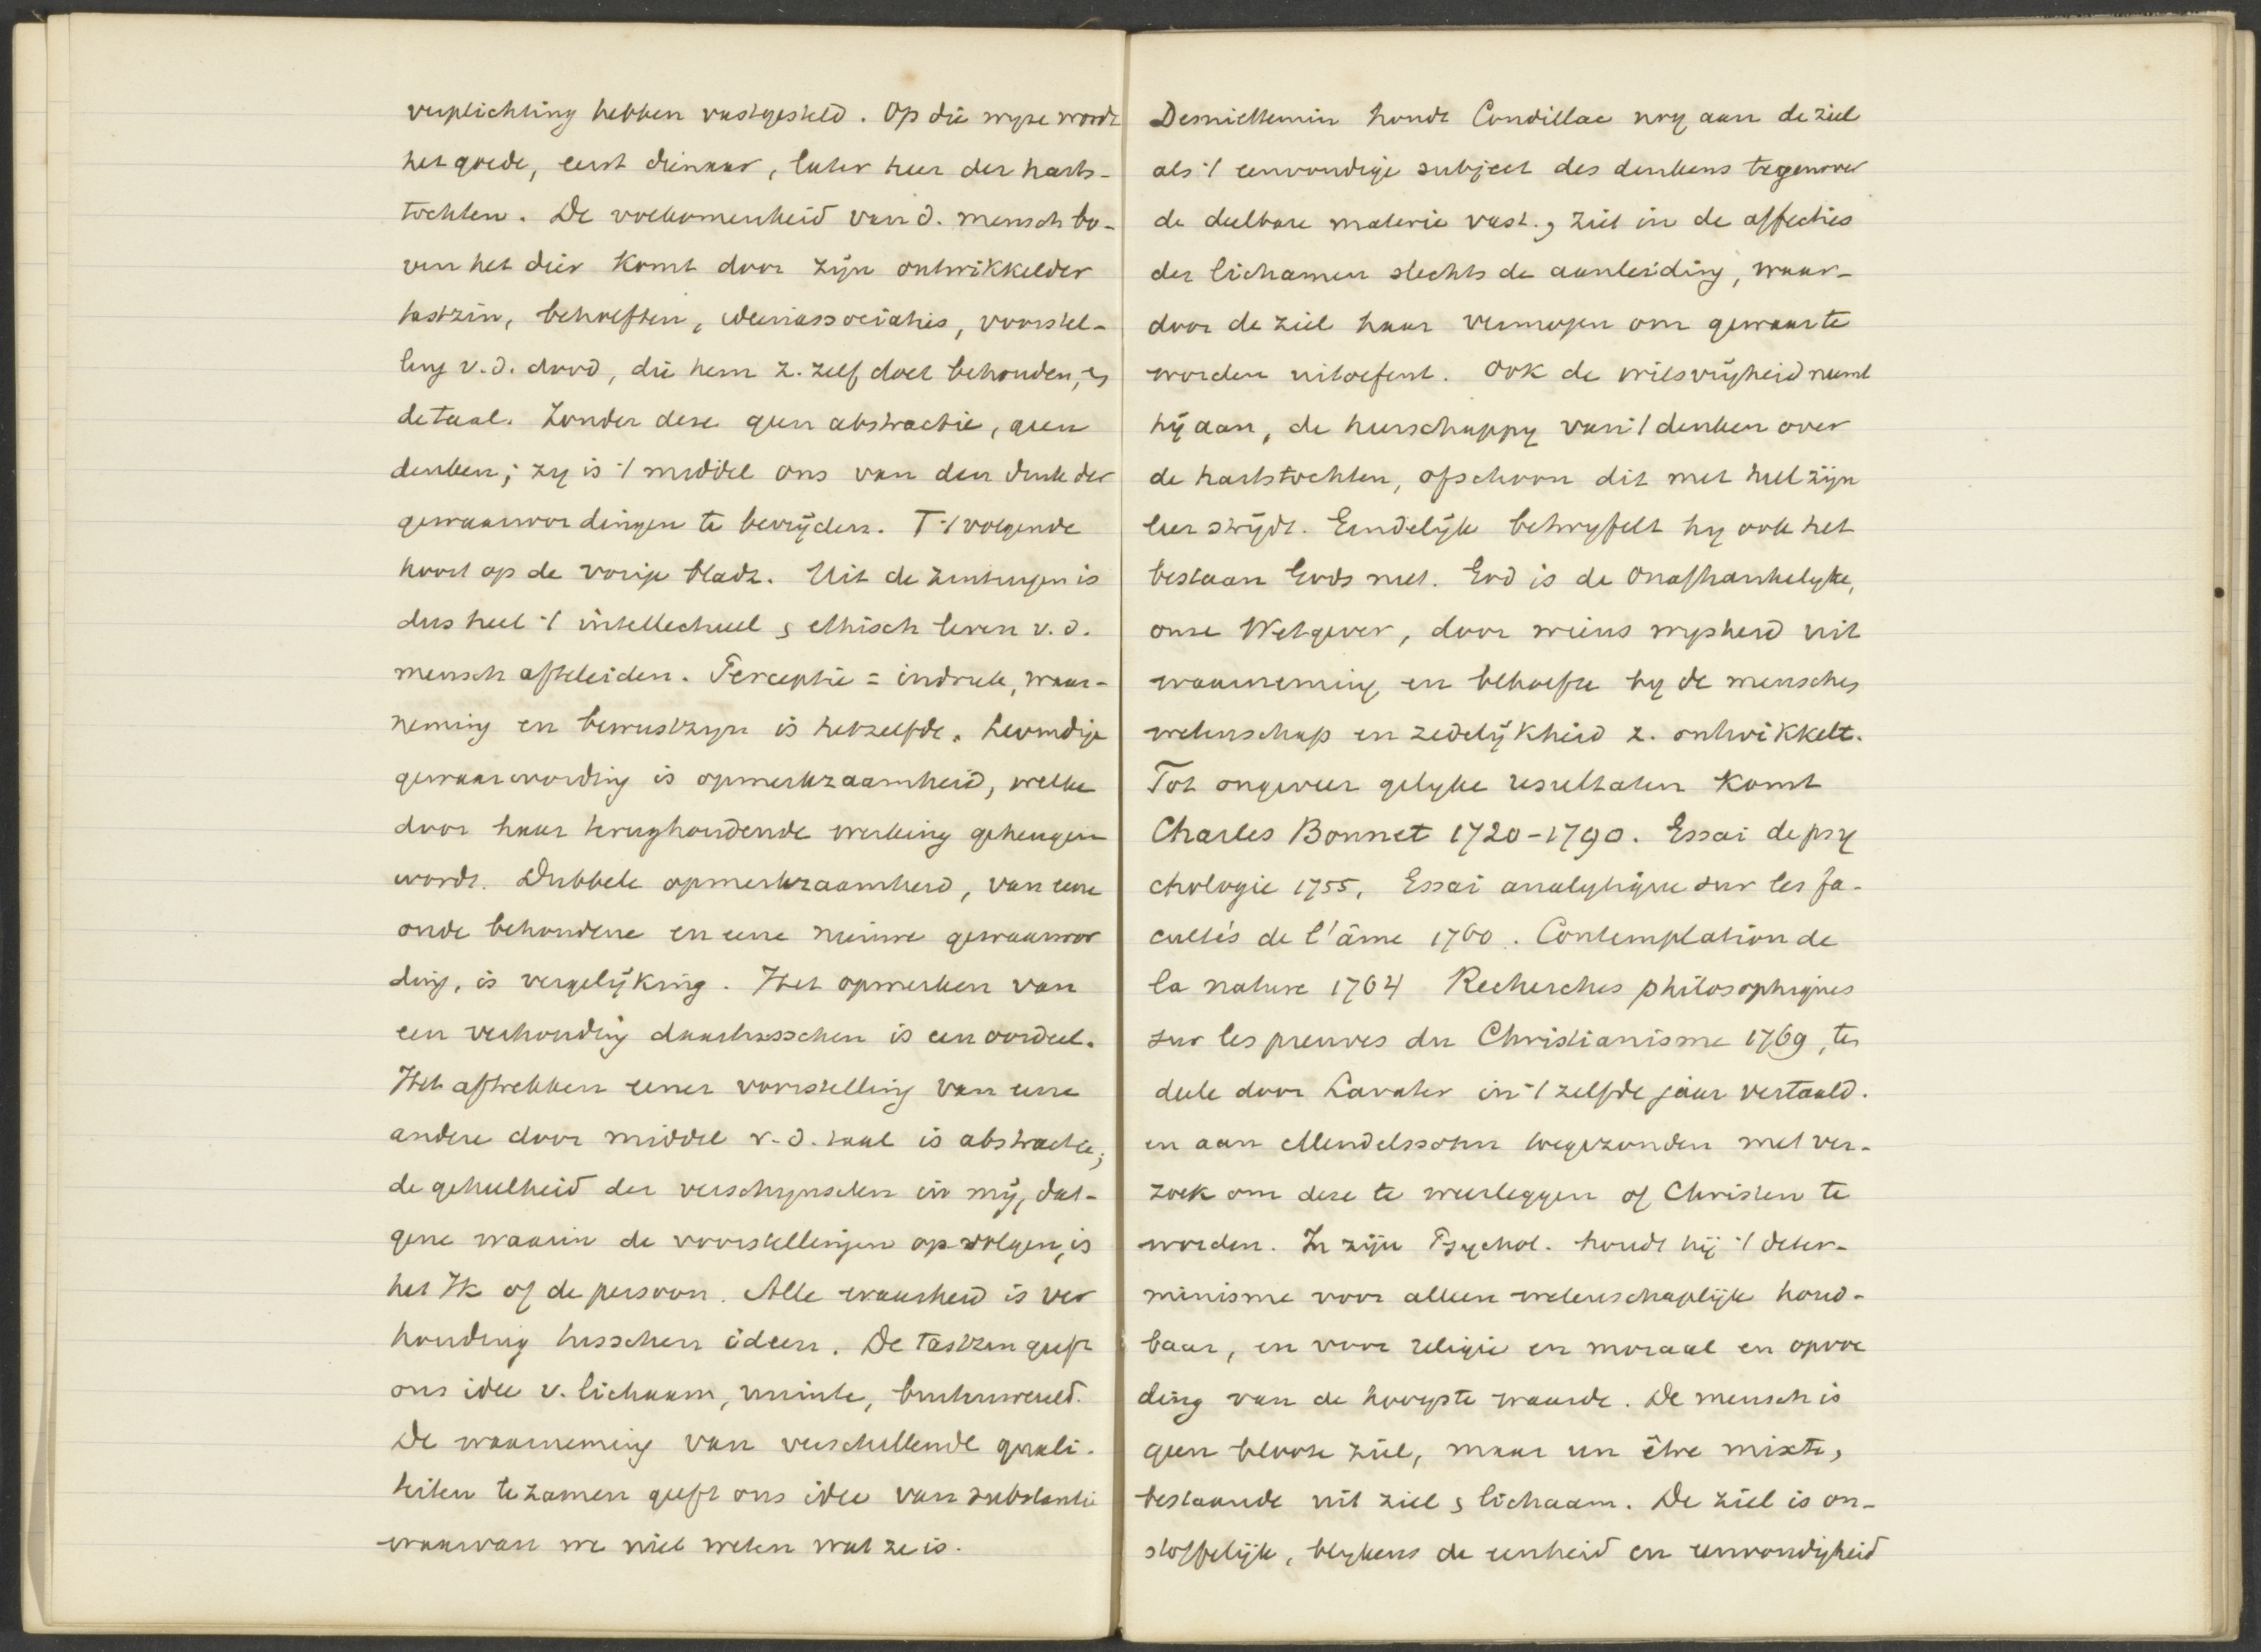 verplichting hebben vastgesteld. Op die wyze wordt
het goede, eerst dienaar, later heer der harts-
tochten. De volkomenheid van d. mensch bo-
ven het dier komt door zijn ontwikkelder
tastzin, behoeften, ideeënassociaties, voorstel-
ling v.d. dood, die hem z. zelf doet behouden, &
de taal. Zonder deze geen abstractie, geen
denken; zy is 't middel ons van den druk der
gewaarwordingen te bevrijden. T 't volgende
hoort op de vorige bladz. Uit de zintuigen is
dus heel 't intellectueel & ethisch leven v.d.
mensch afteleiden. Perceptie = indruk, waar-
neming en bewustzyn is hetzelfde. Levendige
gewaarwording is opmerkzaamheid, welke
door haar terughoudende werking geheugen
wordt. Dubbele opmerkzaamheid, van eene
oude behoudene en eene nieuwe gewaarwor
ding, is vergelijking. Het opmerken van
een verhouding daartusschen is een oordeel.
Het aftrekken eener voorstelling van eene
andere door middel v.d. taal is abstractie;
de geheelheid der verschynselen in mij, dat-
gene waarin de voorstellingen opvolgen, is
het Ik of de persoon. Alle waarheid is ver
houding tusschen ideen. De tastzin geeft
ons idee v. lichaam, ruimte, buitenwereld.
De waarneming van verschillende quali-
teiten te zamen geeft ons idee van substantie
waarvan we niet weten wat ze is.
Desniettemin houdt Condillac nog aan de ziel
als 't eenvoudige subject des denkens tegenover
de deelbare materie vast., ziet in de affecties
der lichamen slechts de aanleiding, waar-
door de ziel haar vermogen om gewaar te
worden uitoefent. Ook de wilsvrijheid neemt
hij aan, de heerschappy van 't denken over
de hartstochten, ofschoon dit met heel zijn
leer strijdt. Eindelijk betwyfelt hy ook het
bestaan Gods niet. God is de Onafhankelyke,
onze Wetgever, door wiens wysheid uit
waarneming en behoefte by de menschen
wetenschap en zedelijkheid z. ontwikkelt.
Tot ongeveer gelyke resultaten komt
Charles Bonnet 1720-1790. Essai de psy
chologie 1755, Essai analytique sur les fa-
cultés de l'âme 1760. Contemplation de
la nature 1764 Recherches philosophiques
sur les preuves du Christianisme 1769, ten
deele door Lavater in 't zelfde jaar vertaald.
en aan Mendelssohn toegezonden met ver-
zoek om deze te weerleggen of Christen te
worden. In zijn Psychol. houdt hij 't deter-
minisme voor alleen wetenschaplijk houd-
baar, en voor religie en moraal en opvoe
ding van de hoogste waarde. De mensch is
geen bloote ziel, maar un être mixte,
bestaande uit ziel & lichaam. De ziel is on-
stoffelijk, blykens de eenheid en eenvoudigheid